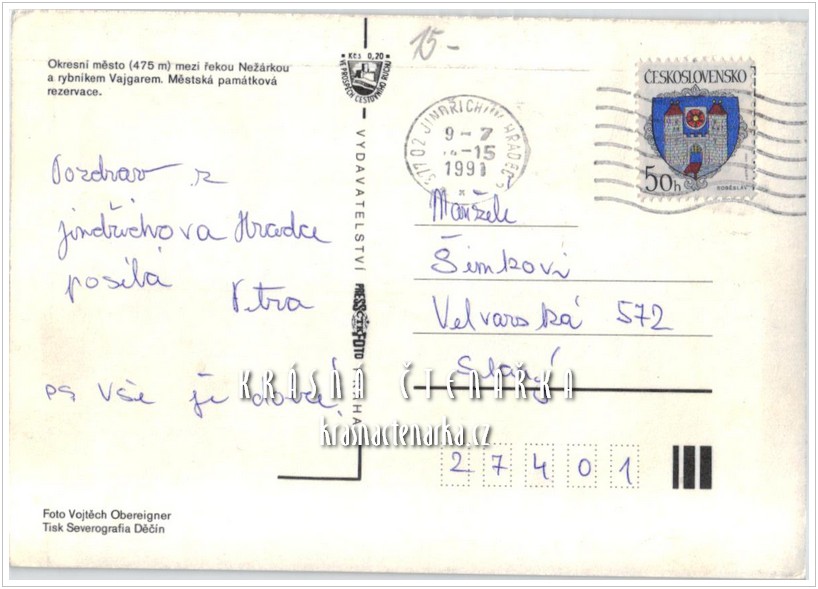 Okresní město (475 m) mezi řekou Nežárkou
a rybníkem Vajgarem. Městská památková
rezervace.
Kčs 0,20
VE PROSPĚCH CESTOVNÍHO RUCHU
15-
ČESKOSLOVENSKO
50h
SOBĚSLAV
377 02 JINDŘICHŮV HRADEC
9-7
-15
1991
Pozdrav z
Jindřichova Hradce
posílá
Petra
PS Vše je dobré!
VYDAVATELSTVÍ
PRESSFOTO
PRAHA
Manželé
Šimkovi
Velvarská 572
Slaný
27401
KRÁSNÁ ČTENÁŘKA
krasnactenarka.cz
Foto Vojtěch Obereigner
Tisk Severografia Děčín